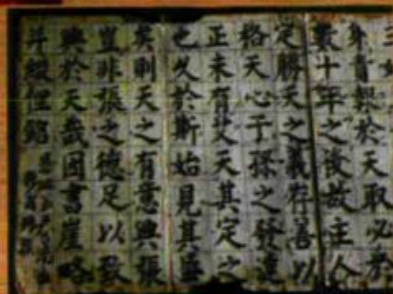 身責報於天取必於
數十年之後故主人
定勝天之義存善以
格天心子孫之發達
正未有艾天其定之
也久於斯始見其盛
矣則天之有意興張
豈非張之德足以致
興於天哉因書崖略
并綴俚銘